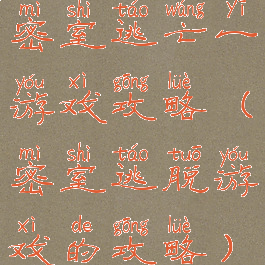 mì shì táo wáng yī
密室逃亡一
yóu xì gōng lüè
游戏攻略（
mì shì táo tuō yóu
密室逃脱游
xì de gōng lüè
戏的攻略）